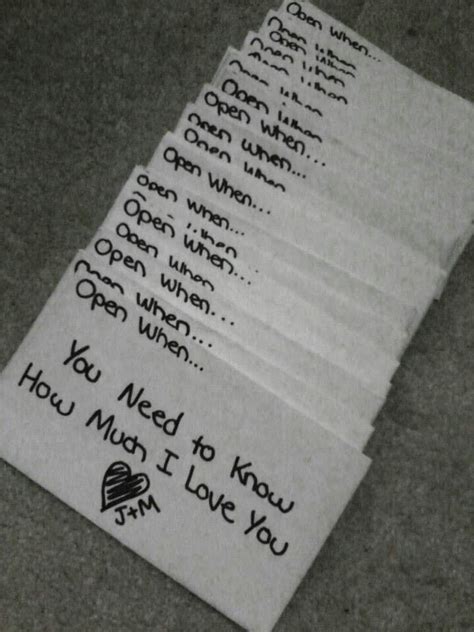 Open When...
Open When
Open When
Open When
Open When
Open When
Open When...
Open When...
Open When
Open When...
Open When...
When
Open When...
Open When
Open When...
Open When...
Open When...
You Need to Know
How Much I Love You
J+M